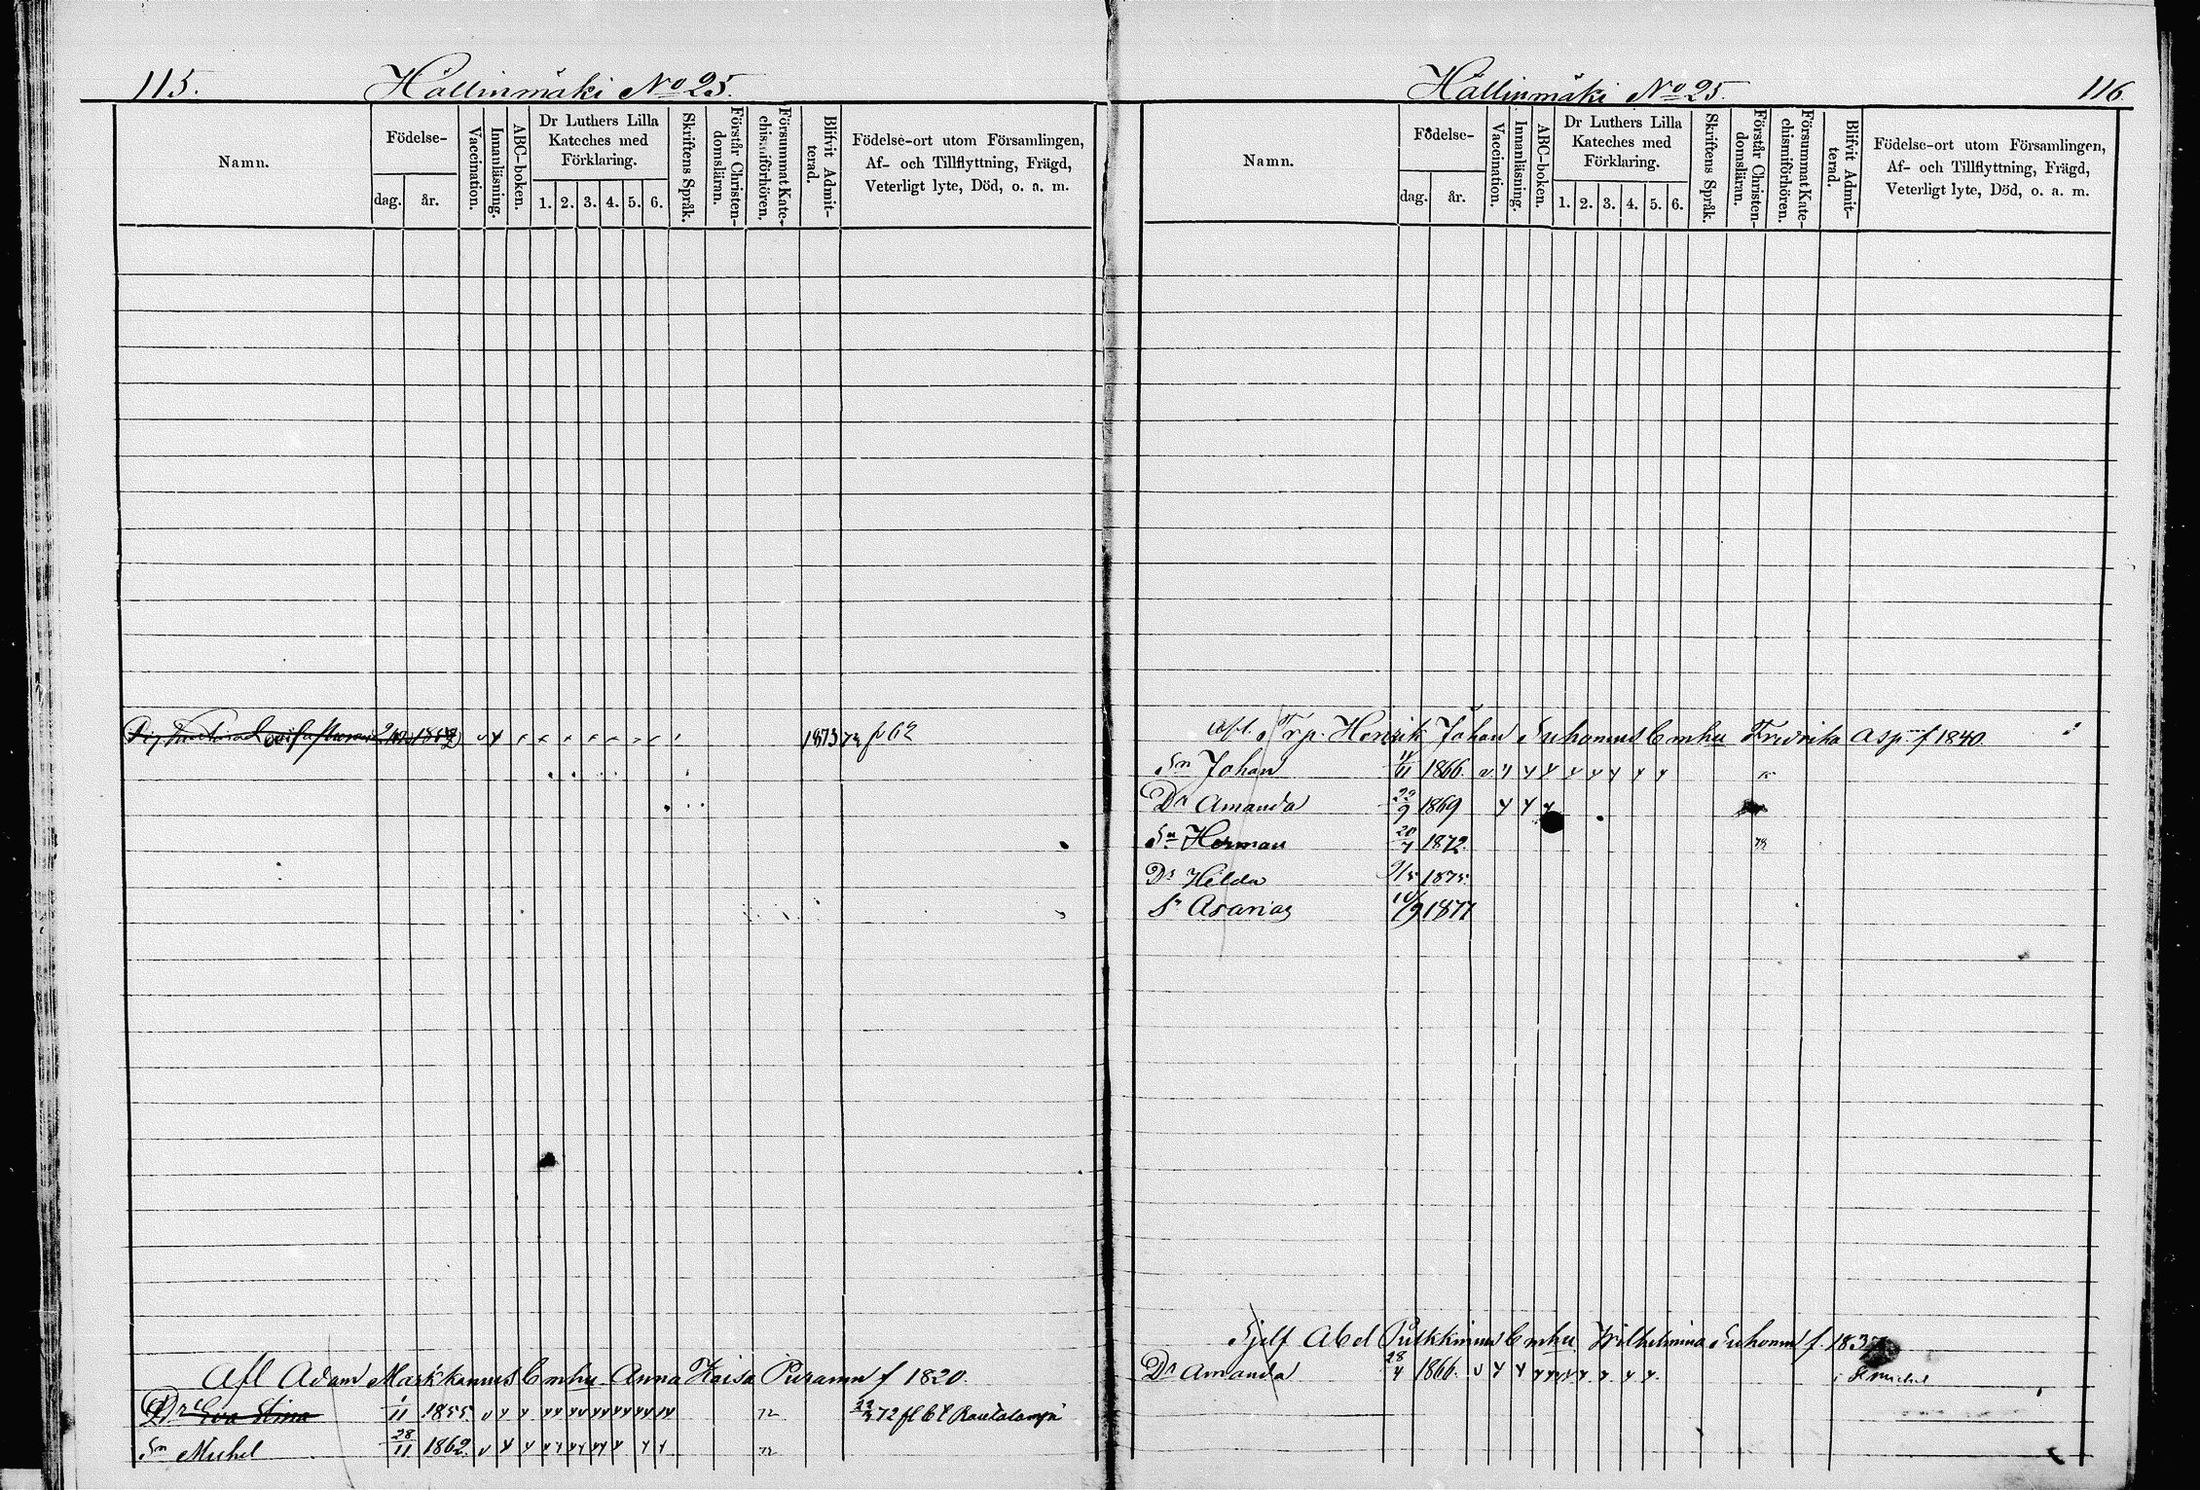 115. Hällinmäki No 25.
Namn. Födelse- dag. år. Vaccination. Innanläsning. ABC-boken. Dr Luthers Lilla Kateches med Förklaring. 1. 2. 3. 4. 5. 6. Skriftens Språk. Förstår Christendomsläran. Försummat Katechismiförhören. Blifvit Admitterad. Födelse-ort utom Församlingen, Af- och Tillflyttning, Frägd, Veterligt lyte, Död, o. a. m.
1873
Afl Adam Markkanens Enka Anna Kaisa Puranen f 1820.
Dr Eva Stina 1/11 1855. 72 72 fl Rautalampi
Sn Michel 28/11 1862. 72
Hällinmäki No 25. 116
Namn. Födelse- dag. år. Vaccination. Innanläsning. ABC-boken. Dr Luthers Lilla Kateches med Förklaring. 1. 2. 3. 4. 5. 6. Skriftens Språk. Förstår Christendomsläran. Försummat Katechismiförhören. Blifvit Admitterad. Födelse-ort utom Församlingen, Af- och Tillflyttning, Frägd, Veterligt lyte, Död, o. a. m.
Afl. Trp. Henrik Johan Suhonens Enka Fredrika Asp f 1840.
Sn Johan 1/11 1866.
Dr Amanda 22/9 1869
Sn Herman 20/7 1872.
Dr Hilda 9/5 1875.
Sn Asarias 10/9 1877
Sjelf Abel Putkkinens Enka Wilhelmina Suhonen f. 1837
Dr Amanda 28/4 1866. i St Michel